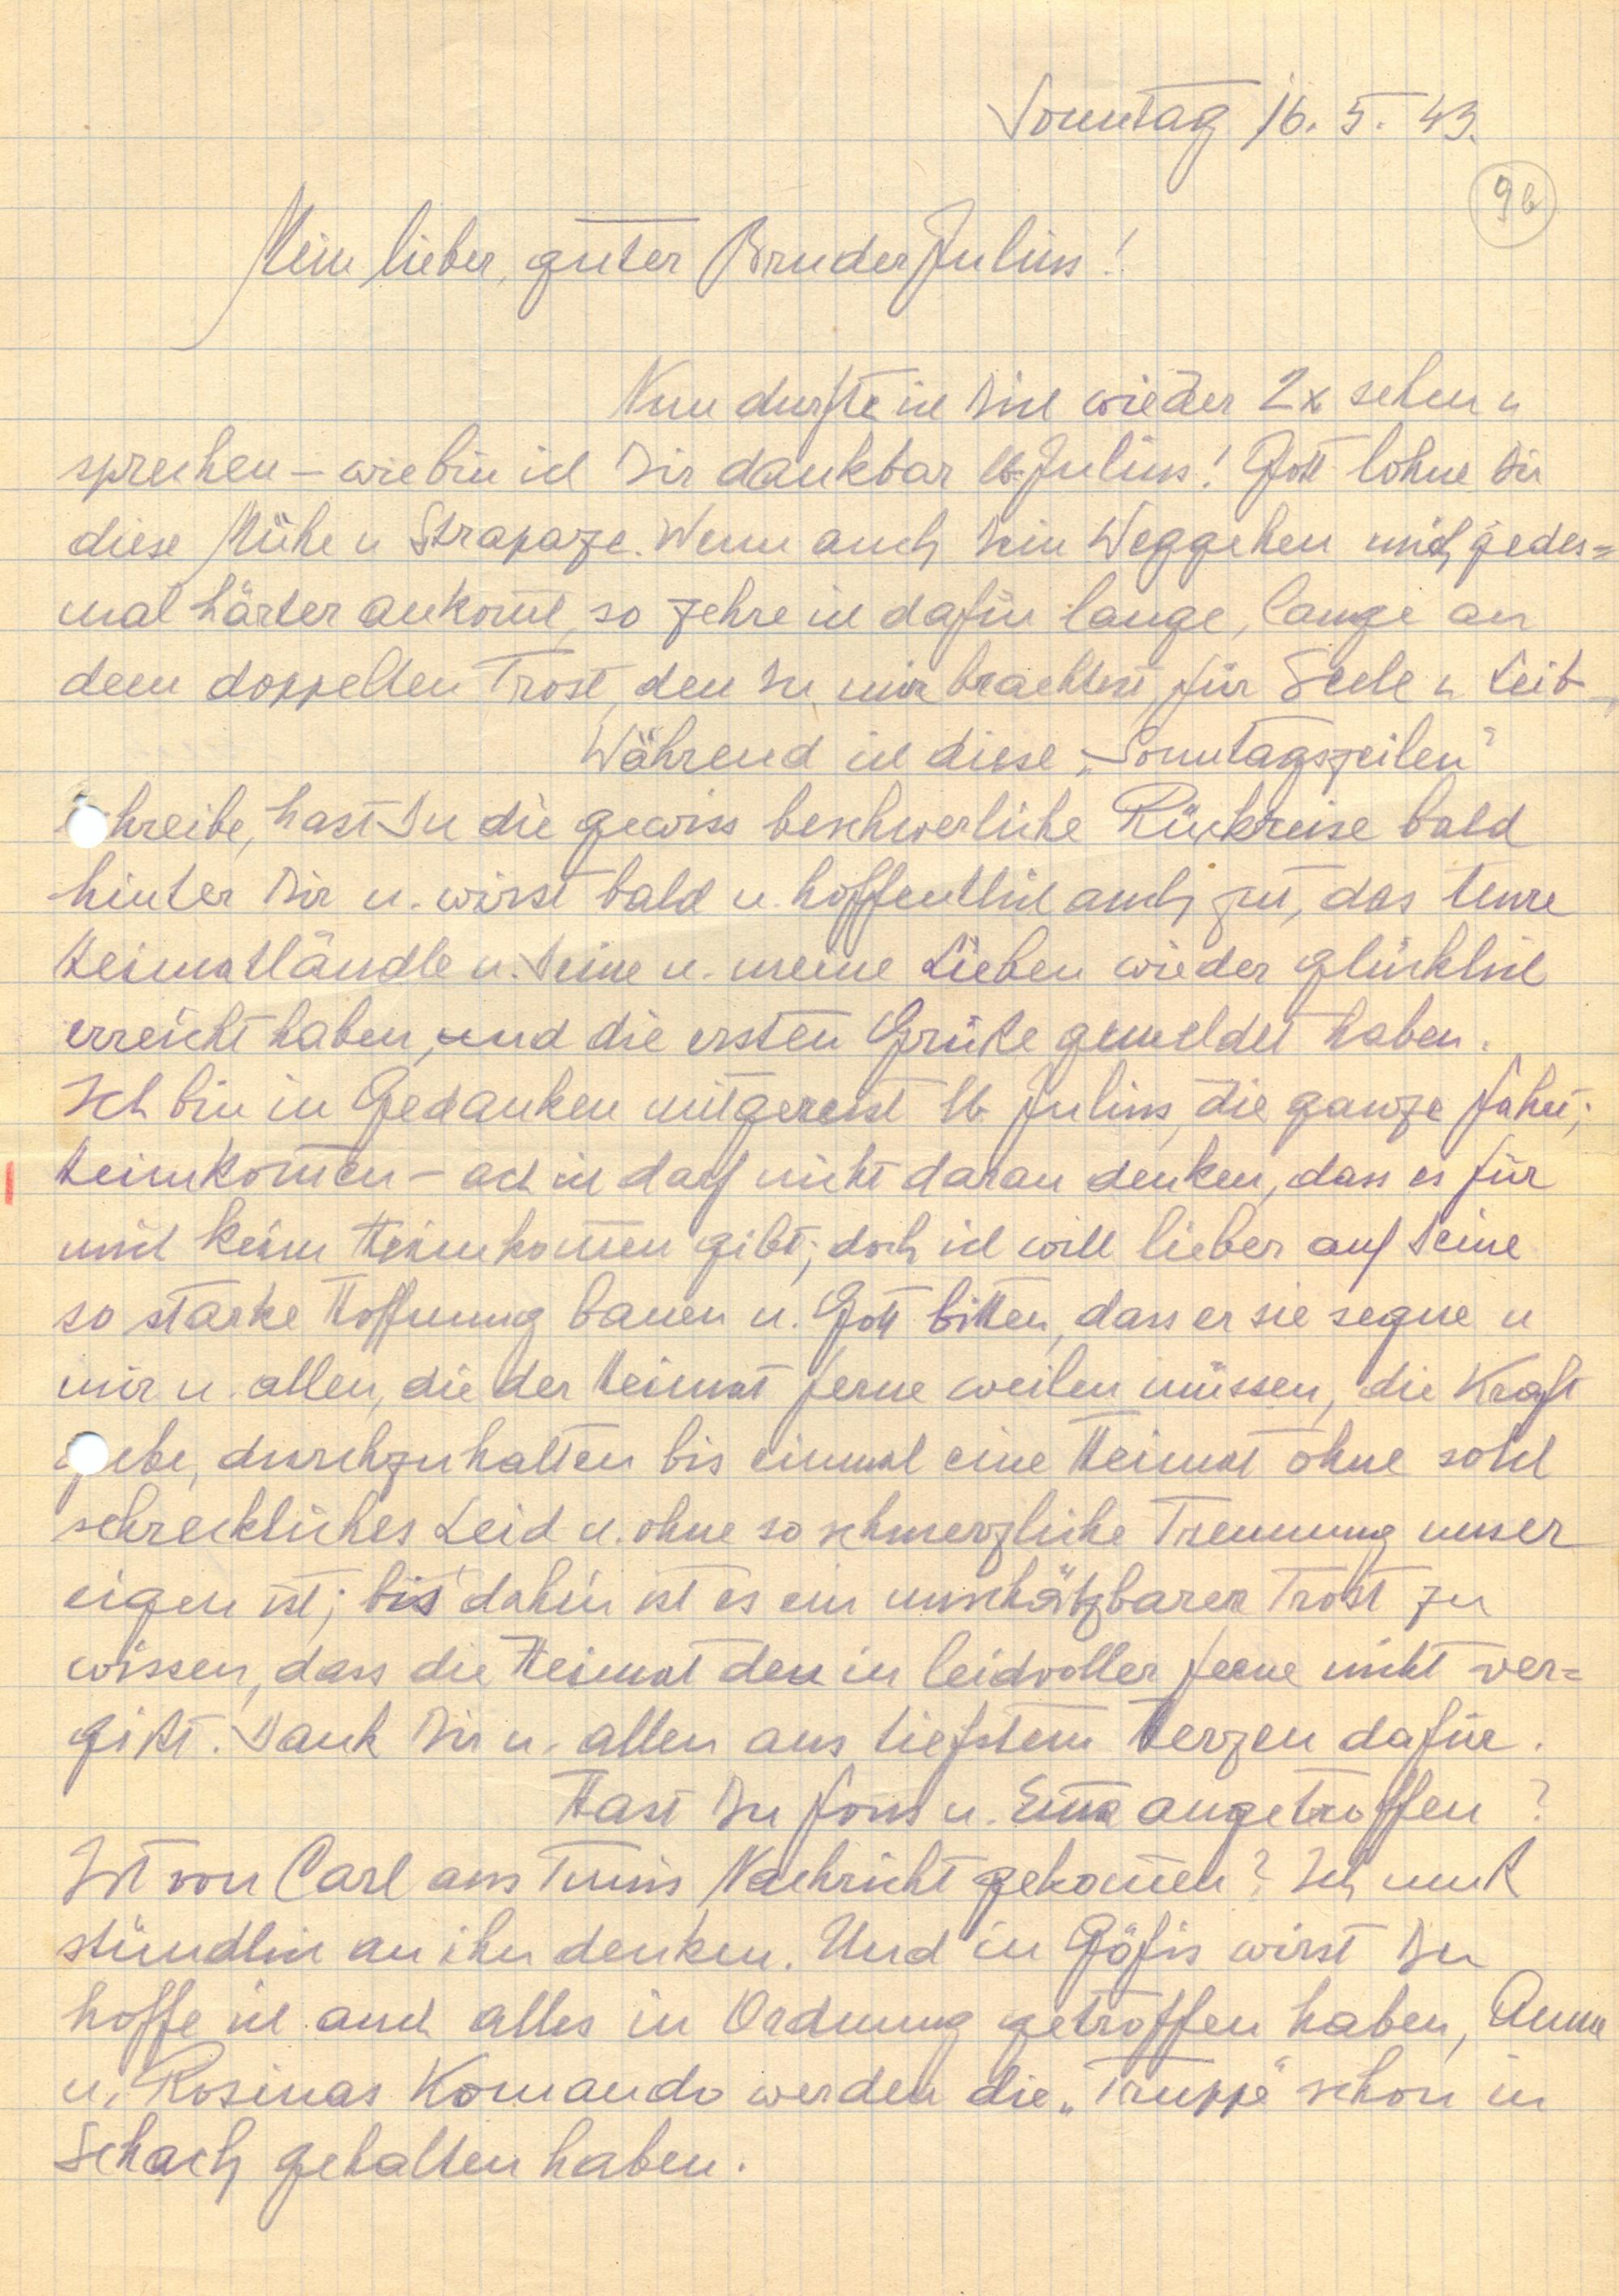 Sonntag 16. 5. 43.
9b
Mein lieber, guter Bruder Julius!
Nun durfte ich Dich wieder 2x sehen u
sprechen – wie bin ich Dir dankbar lb. Julius! Gott lohne Dir
diese Mühe u Strapaze. Wenn auch Dein Weggehen mich jedes=
mal härter ankom̅t, so zehre ich dafür lange, lange an
dem doppelten Trost, den Du mir brachtest, für Seele u Leib –
Während ich diese „Sonntagszeilen"
schreibe, hast Du die gewiss beschwerliche Rückreise bald
hinter Dir u. wirst bald u. hoffentlich auch gut, das teure
Heimatländle u. Deine u. meine Lieben wieder glücklich
erreicht haben, und die ersten Grüße gemeldet haben.
Ich bin in Gedanken mitgereist lb. Julius, die ganze Fahrt;
Heimkom̅en – ach ich darf nicht daran denken, dass es für
mich kein Heimkom̅en gibt; doch ich will lieber auf Deine
so starke Hoffnung bauen u. Gott bitten, dass er sie segne u
mir u. allen, die der Heimat ferne weilen müssen, die Kraft
gebe, durchzuhalten bis einmal eine Heimat ohne solch
schreckliches Leid u. ohne so schmerzliche Trennung unser
eigen ist; bis dahin ist es ein unschätzbarer Trost zu
wissen, dass die Heimat den in leidvoller Ferne nicht ver=
gißt. Dank Dir u. allen aus tiefstem Herzen dafür.
Hast Du Fons u. angetroffen?
Ist von Carl aus Tunis Nachricht gekom̅en? Ich muß
stündlich an ihn denken. Und in Göfis wirst Du
hoffe ich auch alles in Ordnung getroffen haben, Anna
u. Rosinas Komando werden die „Truppe" schon in
Schach gehalten haben.